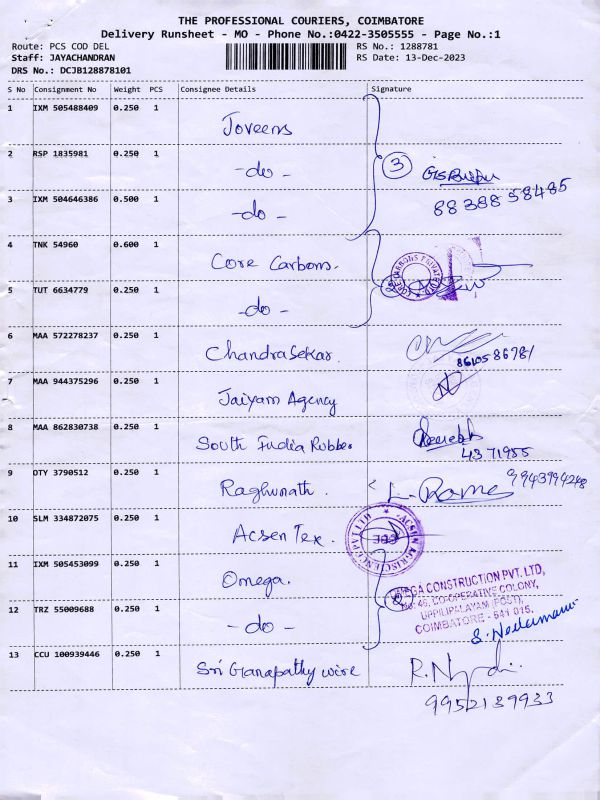 THE PROFESSIONAL COURIERS, COIMBATORE
Delivery Runsheet - MO - Phone No.:0422-3505555 - Page No.:1
Route: PCS COD DEL RS No.: 1288781
Staff: JAYACHANDRAN RS Date: 13-Dec-2023
DRS No.: DCJB128878101
S No Consignment No Weight PCS Consignee Details Signature
1 IXM 505488409 0.250 1 Joveens
2 RSP 1835981 0.250 1 -do- 3
3 IXM 504646386 0.500 1 -do- 88388 58485
4 TNK 54960 0.600 1 Core Carbons.
5 TUT 6634779 0.250 1 -do-
6 MAA 572278237 0.250 1 Chandrasekar. 86105 86781
7 MAA 944375296 0.250 1 Jaiyam Agency
8 MAA 862830738 0.250 1 South India Rubber 4371955
9 OTY 3790512 0.250 1 Raghunath. 9943994248
10 SLM 334872075 0.250 1 Acsen Tex.
ACSEN AGRISCIENCE PVT LTD
11 IXM 505453099 0.250 1 Omega.
12 TRZ 55009688 0.250 1 -do-
CONSTRUCTION PVT. LTD,
No: 46, CO-OPERATIVE COLONY,
UPPILIPALAYAM (POST),
COIMBATORE - 641 015.
13 CCU 100939446 0.250 1 Sri Ganapathy wire
9952139933